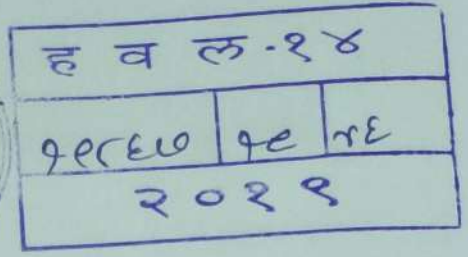 ह व ल-१४
१९८६७ १९ ४६
२०१९